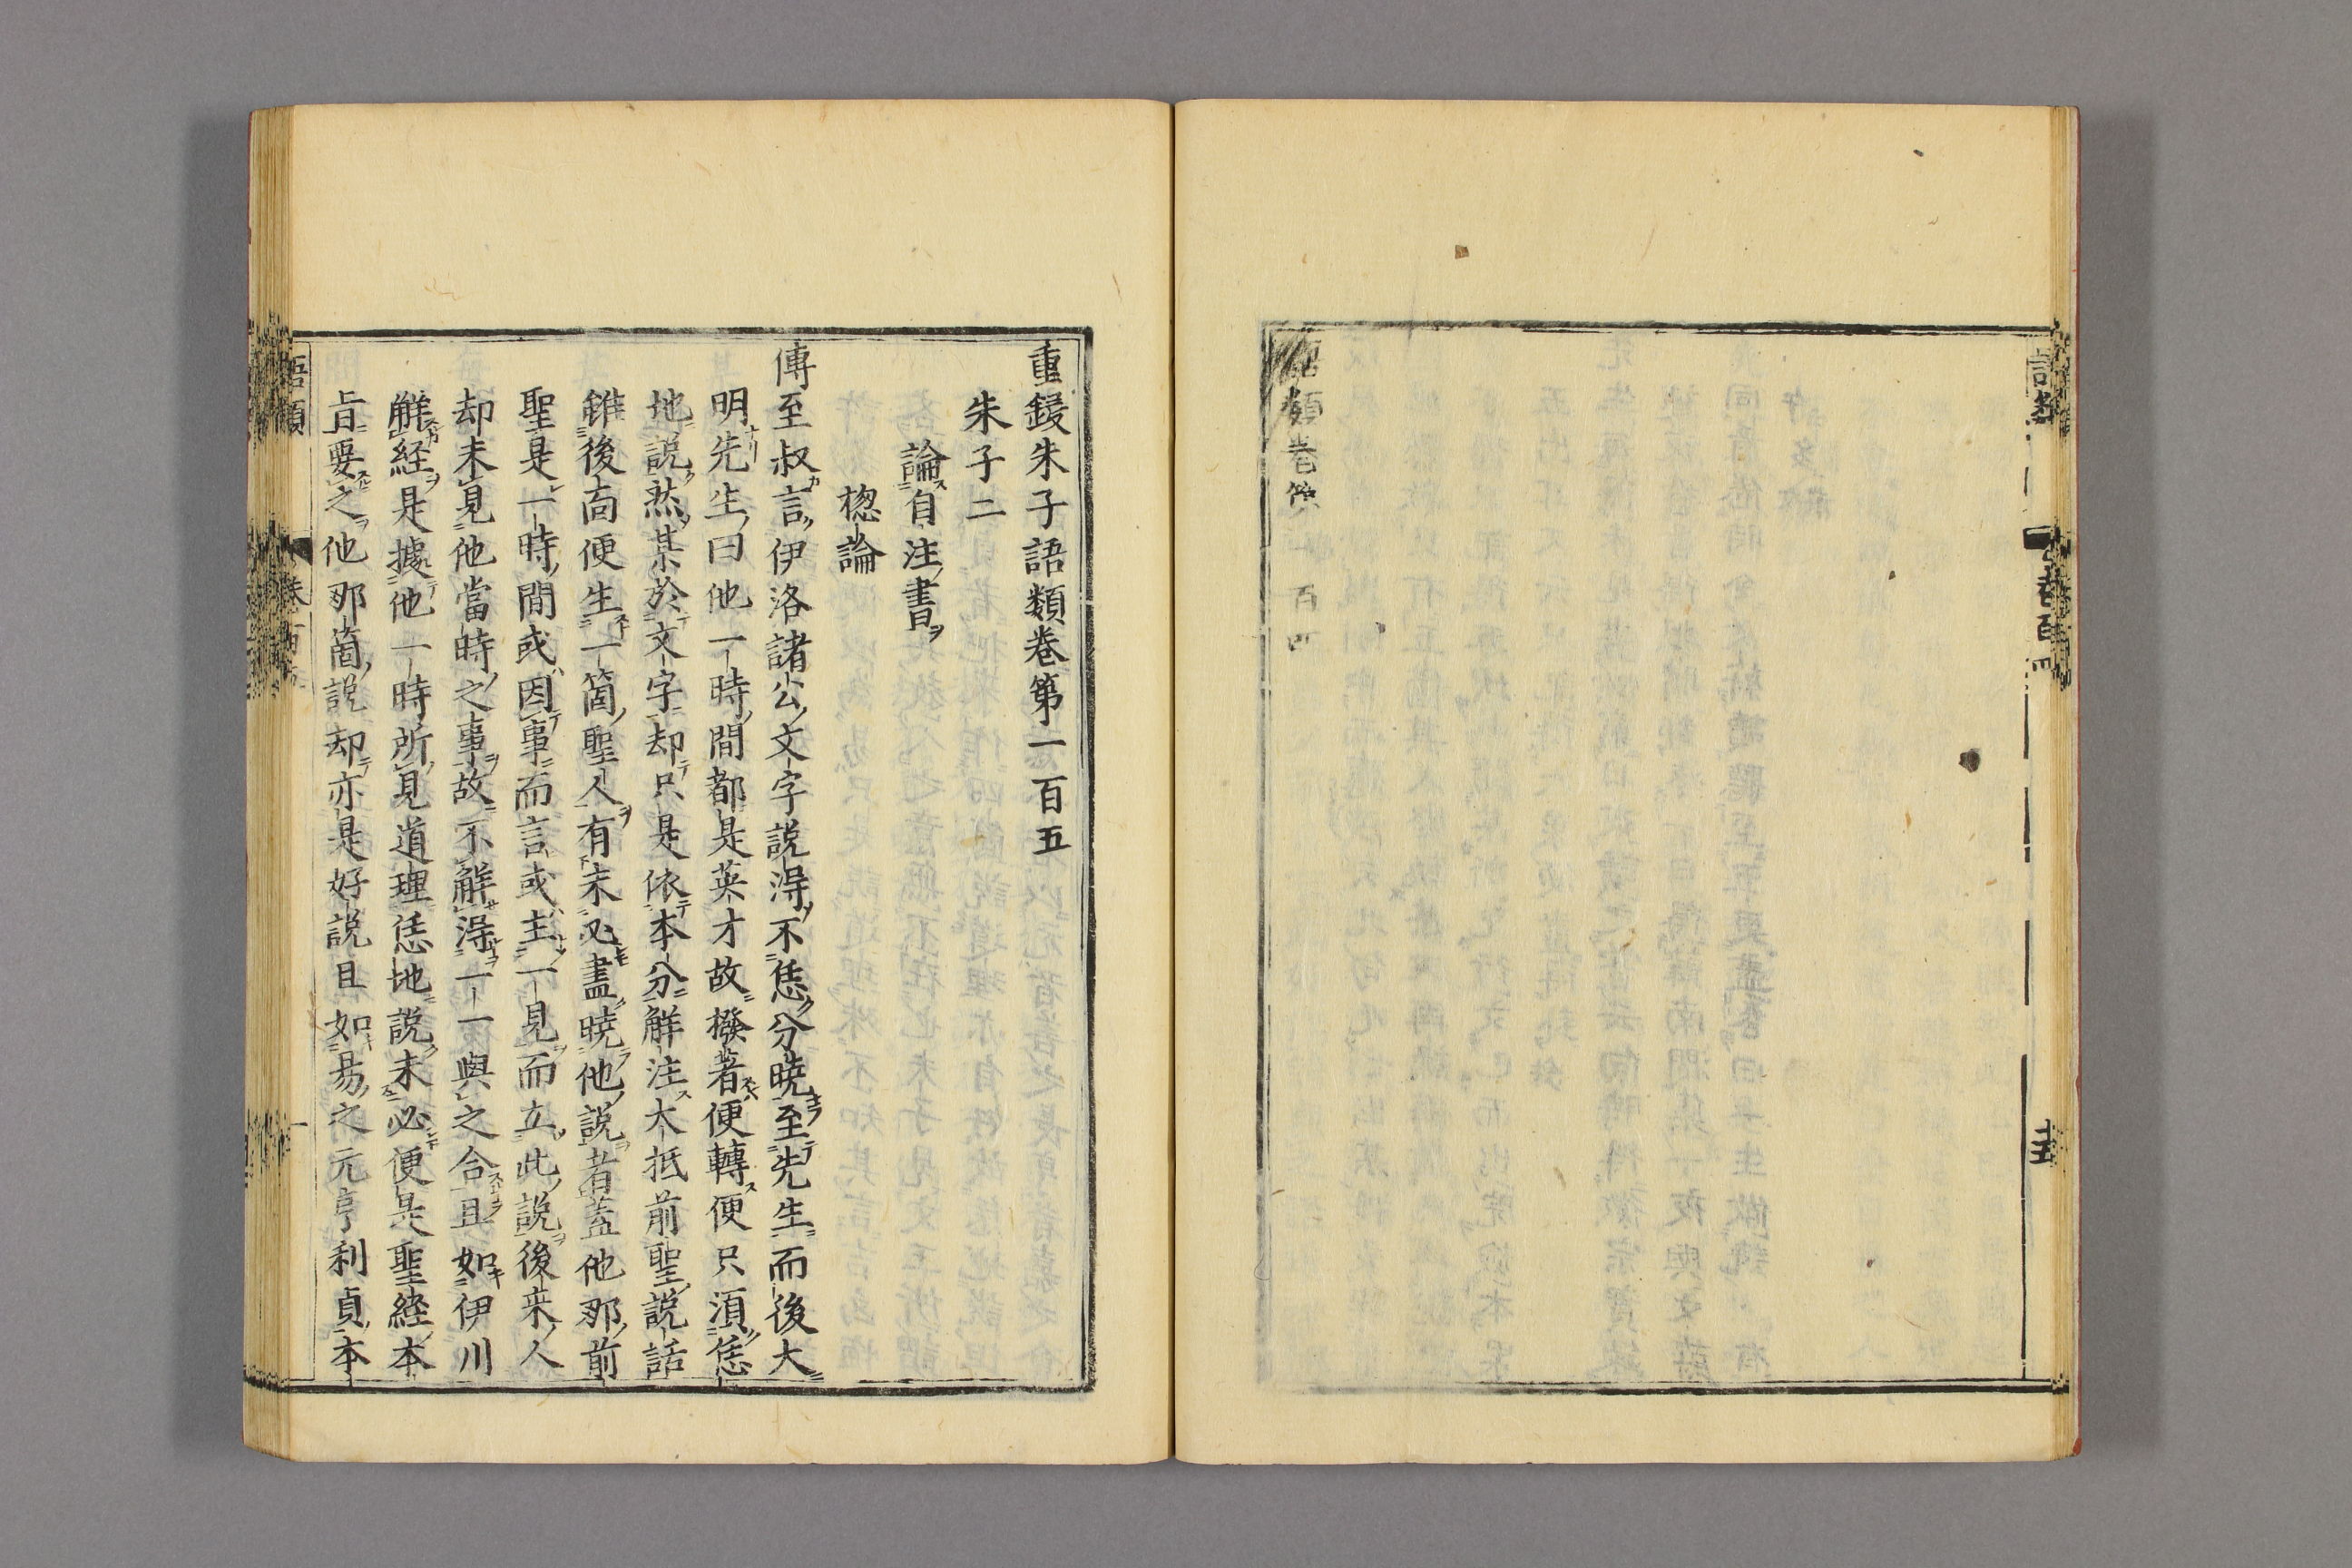 語類卷第一百四
重鋟朱子語類卷第一百五
朱子二
論自注書
楤論
傳至叔言伊洛諸公文字説淂不恁分暁至先生而後大
明先生曰他一時間都是英才故撥著便轉便只湏恁
地説然某於文字却只是依本分觧注大抵前聖説話
雖後靣便生一箇聖人有未必盡暁他説者蓋他那前
聖是一時間或因事而言或主一見而立此説後来人
却未見他當時之事故不觧淂一一與之合且如伊川
觧経是據他一時所見道理恁地説未必便是聖經本
旨要之他那箇説却亦是好説且如易之元亨利貞本
語類